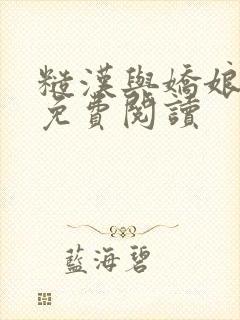 糙漢與嬌娘
免費閱讀
藍海碧